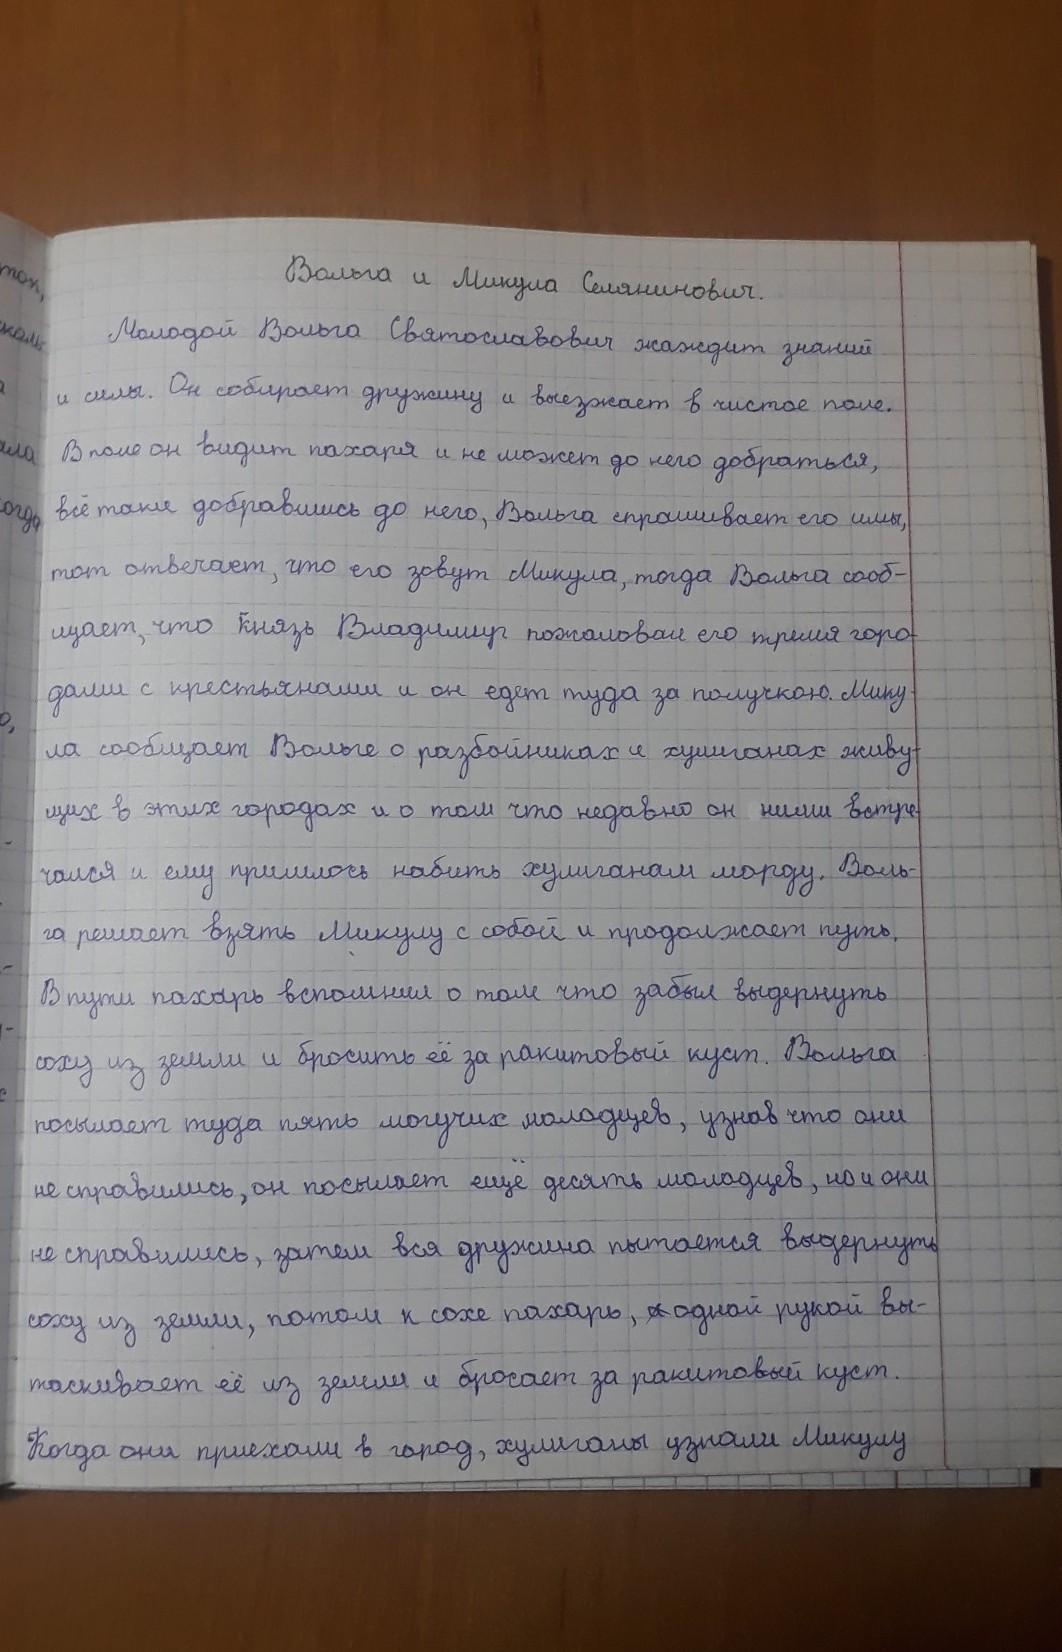 Вольга и Микула Селянинович.
Молодой Вольга Святославович жаждит знаний
и силы. Он собирает дружину и выезжает в чистое поле.
В поле он видит пахаря и не может до него добраться,
всё таки добравшись до него, Вольга спрашивает его имы,
тот отвечает, что его зовут Микула, тогда Вольга сооб-
щает, что князь Владимир пожаловал его тремя горо-
дами с крестьянами и он едет туда за получкою. Мику-
ла сообщает Вольге о разбойниках и хулиганах живу-
щих в этих городах и о том что недавно он ними встре-
чался и ему пришлось набить хулиганам морду. Воль-
га решает взять Микулу с собой и продолжает путь.
В пути пахарь вспомнил о том что забыл выдернуть
соху из земли и бросить её за ракитовый куст. Вольга
посылает туда пять могучих молодцев, узнав что они
не справились, он посылает ещё десять молодцев, но и они
не справились, затем вся дружина пытается выдернуть
соху из земли, потом к сохе пахарь, одной рукой вы-
таскивает её из земли и бросает за ракитовый куст.
Когда они приехали в город, хулиганы узнали Микулу
тох,
ала
когда